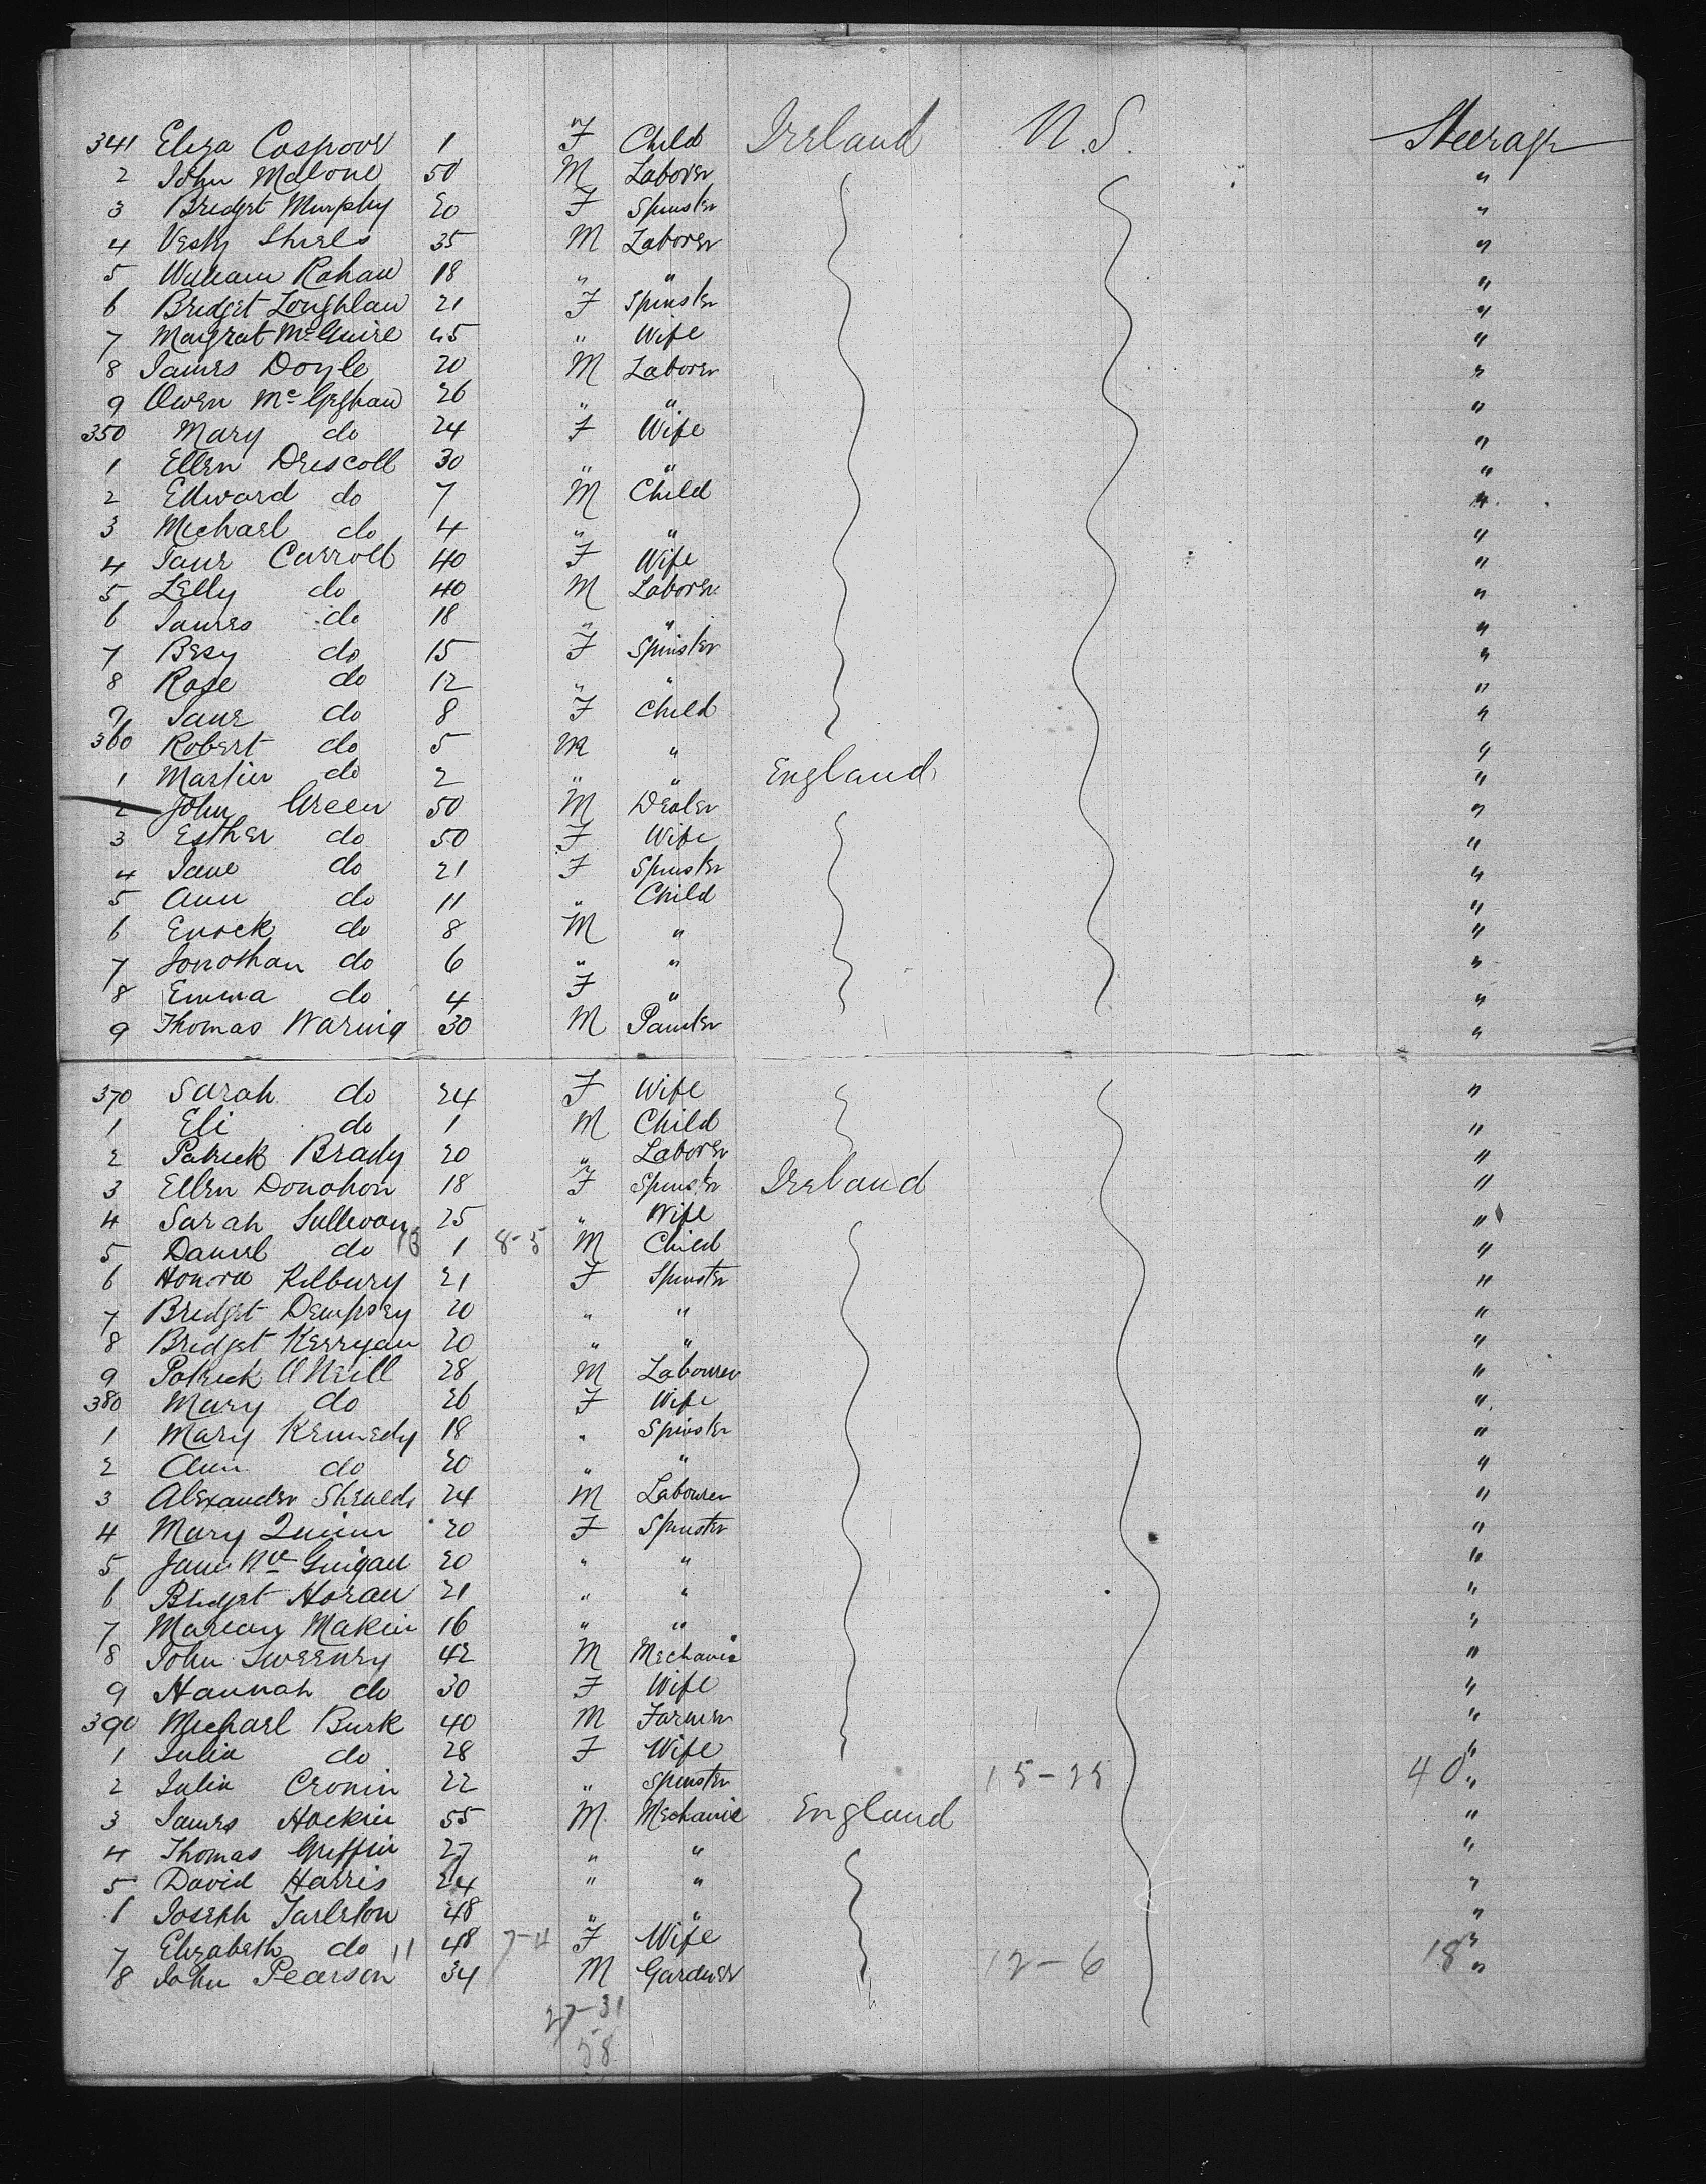 341 Eliza Caspoor 1 F Child Ireland U.S. Steerage
2 John Malone 50 M Laborer "
3 Bridget Murphy 20 F Spinster "
4 Shiels 35 M Laborer "
5 William Rahan 18 " " "
6 Bridget Loughlan 21 F Spinster "
7 Margrat McGuire 45 " Wife "
8 James Doyle 20 M Laborer "
9 Owen McGeghan 26 " " "
350 Mary do 24 F Wife "
1 Ellen Driscoll 30 " " "
2 Edward do 7 M Child "
3 Michael do 4 " " "
4 Jane Carroll 40 F Wife "
5 Lelly do 40 M Laborer "
6 James do 18 " " "
7 Besy do 15 F Spinster "
8 Rose do 12 " " "
9 Jane do 8 F Child "
360 Robert do 5 M " "
1 Martin do 2 " " England "
2 John Green 50 M Dealer "
3 Esther do 50 F Wife "
4 Jane do 21 F Spinster "
5 Ann do 11 " Child "
6 Enock do 8 M " "
7 Jonothan do 6 " " "
8 Emma do 4 F " "
9 Thomas Waring 30 M Painter "
370 Sarah do 24 F Wife "
1 Eli do 1 M Child "
2 Patrick Brady 20 " Laborer "
3 Ellen Donohon 18 F Spinster Ireland "
4 Sarah Sullivan 25 " Wife "
5 Daniel do 13 1 8-5 M Child "
6 Honora Kilbury 21 F Spinster "
7 Bridget Dempsey 20 " " "
8 Bridget Kerryan 20 " " "
9 Patrick O'Neill 28 M Labourer "
380 Mary do 26 F Wife "
1 Mary Kennedy 18 " Spinster "
2 Ann do 20 " " "
3 Alexander Shields 24 M Labourer "
4 Mary Quinn 20 F Spinster "
5 Jane McGuigan 20 " " "
6 Bridget Horan 21 " " "
7 Makin 16 " " "
8 John Sweeney 42 M Mechanic "
9 Hannah do 30 F Wife "
390 Michael Burk 40 M Farmer "
1 Julia do 28 F Wife "
2 Julia Cronin 22 " Spinster 15-25 40 "
3 James Hockin 55 M Mechanic England "
4 Thomas Griffin 27 " " "
5 David Harris 24 " " "
6 Joseph Tarleton 48 " " "
7 Elizabeth do 11 48 7-4 F Wife "
8 John Pearson 34 M Gardner 12-6 18 "
27-31
58